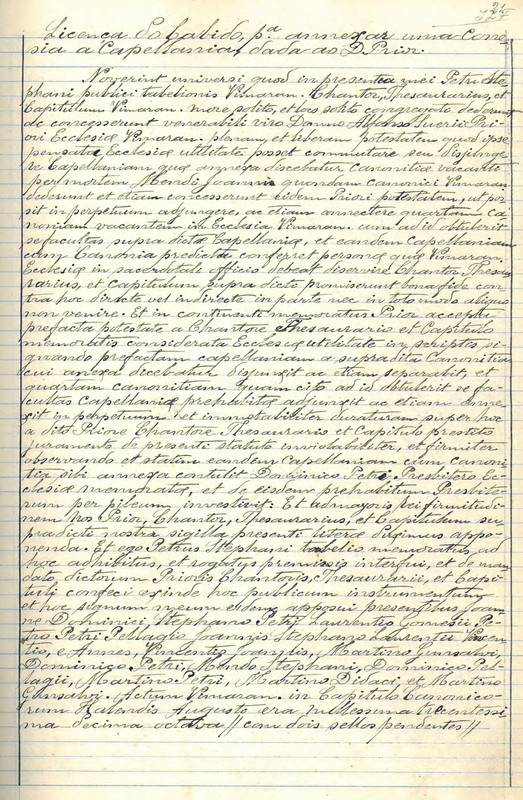 Licença do Cabido, p.ª annexar uma Cone-
sia a Capellania, dada ao D. Prior.
Noverint universi quod in presentea mei Petri Ste-
phani publici tabelionis Vimaran. Chantor, Thesaurarius, et
Capitulum Vimaran. more solito, et loco solito congregato dederunt
ac concesserunt venerabili viro Donno Alfonso Pri-
ori Ecclesiæ Vimaran. plenam, et liberam potestatem quod ipse
pensata Ecclesiæ utilitate posset commutare seu disjunge-
re Capellaniam quæ annexa dicebatur Canonitiæ vacanti
per mortem Mendi Joannis quondam canonici Vimaran.
dederunt et etiam concesserunt eidem Priori potestatem, ut pos-
sit in perpetuum adjungere, ac etiam annectere quartam Ca-
noniam vacantem in Ecclesia Vimaran. cum ad id obtulerit
se facultas supra dictæ Capellaniæ, et eandem Capellaniam
cum Canonia predicta conferret personæ quæ Vimaran.
Ecclesiæ in sacerdotale officio debeat diservire Chantor, Thesau-
rarius, et Capitulum supra dicto promiserunt bona fide con-
tra hoc directe vel indirecte in parte nec in toto modo aliquo
non venire. Et in continenti memoratus Prior accepta
prefacta potestate a Chantore Thesaurario et Capitulo
memoratis considerata Ecclesiæ utilitate in scriptis, si-
quando prefactam capellaniam a supradita Canonitia
cui anexa decebatur disjunxit ac etiam separabit, et
quartam canonitiam quam cito ad id obtulerit se fa-
cultas capellaniæ prehabitæ adjunxit ac etiam anne-
xit in perpetuum et immutabiliter duraturam super hoc
a dito Priore Chantore Thesaurario et Capitulo prestito
juramento de presenti statuto inviolabiliter, et firmiter
observando et statim eandem capellaniam cum canoni-
tia sibi annexa contulit Dominico Petri Presbitero Ec-
clesiæ memoratæ, et de eisdem prehabitum Presbite-
rum per pileum investivit. Et ad majoris rei firmitudi-
nem Nos Prior, Chantor, Thesaurarius, et Capitulum su-
pradicti nostra sigilla presenti literæ duximus appo-
nenda. Et ego Petrus Stephani tabelio memoratus, ad
hoc adhibitus, et rogatus premissis interfui, et de man-
dato, dictorum Prioris Chantoris, Thesaurarii, et Capi-
tuli confeci exinde hoc publicum instrumentum
et hoc signum meum eidem apposui presentibus Joan-
ne Dominici, Stephano Petri Laurentio Gomesii, Pe-
tro Petri Pellagio Joannis Stephano Laurentii Vicen-
tio, e Annes, Vincentio Joannis, Martino Gunsalvi,
Dominico Petri, Mendo Stephani, Dominico Pel-
lagii, Martino Petri, Martino Didaci, et Martino
Gunsalvi. Actum Vimaran. in Capitulo Canonico-
rum Kalendis Augusto era millessima trecentessi-
ma decima octava // com dois sellos pendentes //